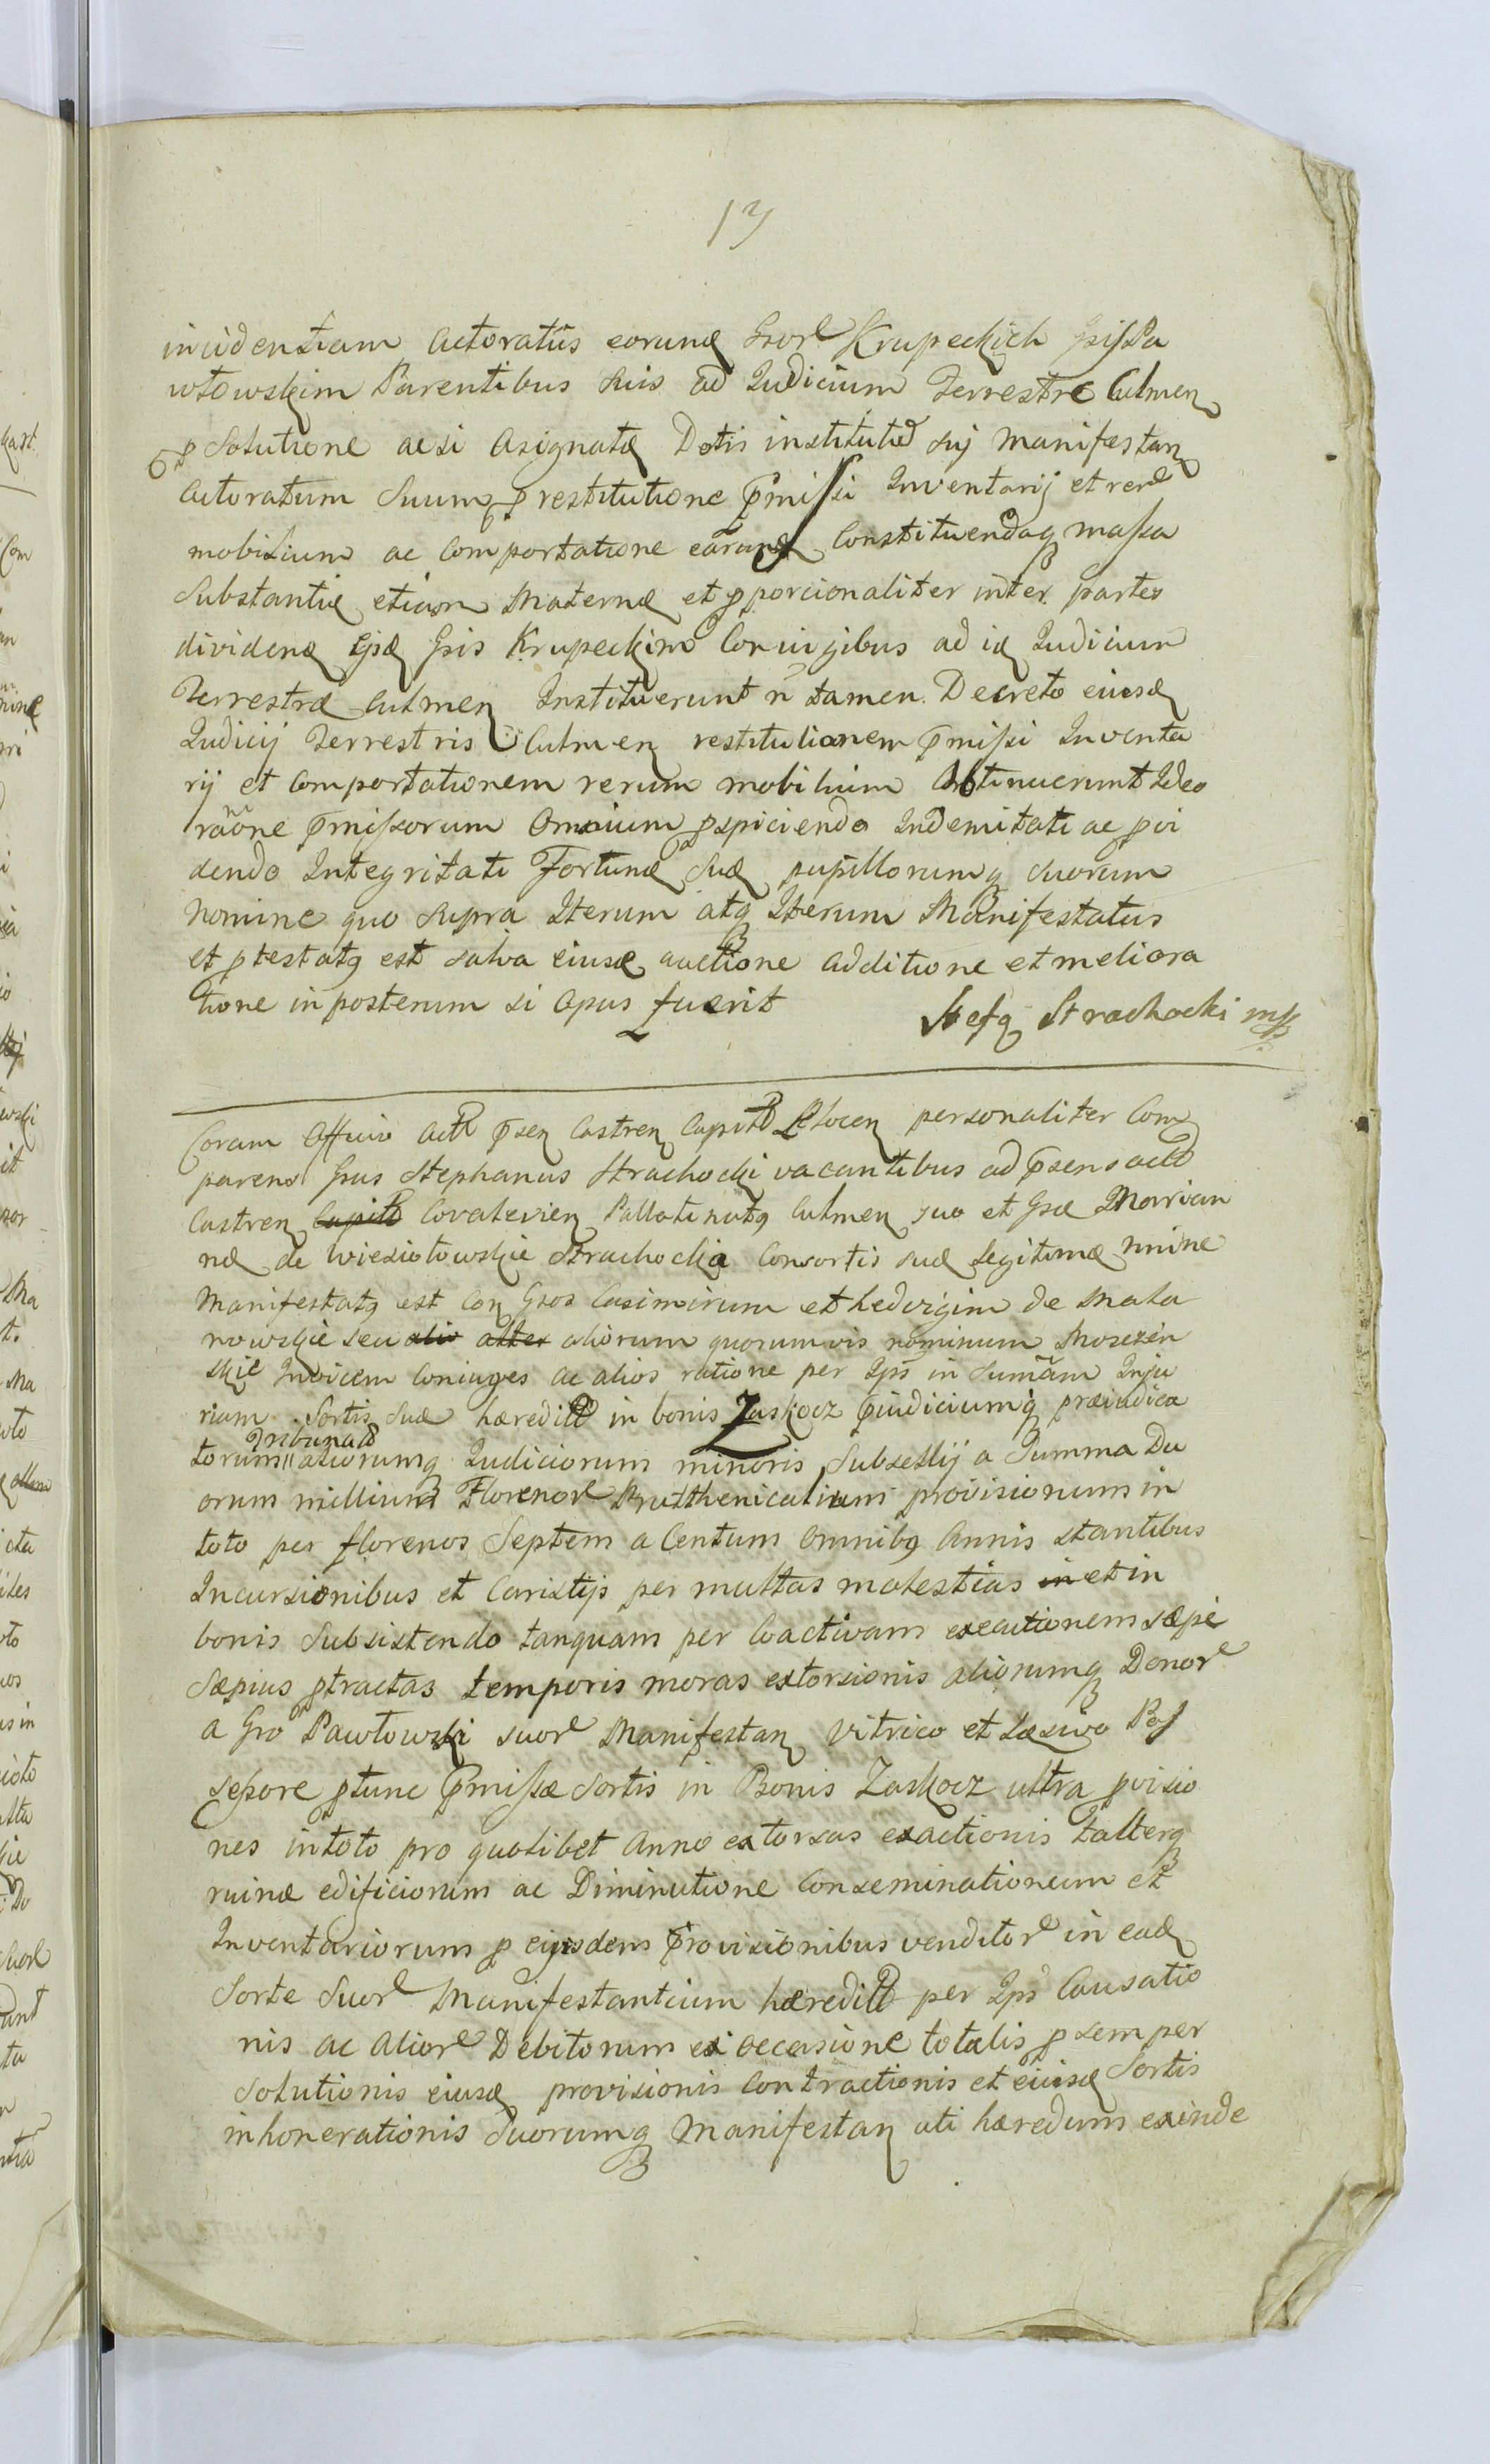 13
incidentiam Actoratus eorund Gror Krupeckich Gsis Pa
włowskim Parentibus suis ad Judicium Terrestre Culmen
p solutione acsi Asignatæ Dotis institutid sui Manifestan
Actoratum Suum p restitutione p̄missi Inventarij et rerd
mobilium ac comportatione earund Constituendaq massa
Substantiæ etiam Maternæ et pporcionaliter inter partes
dividend Gsis Krupeckim Coniugibus ad id Judicium
Terrestræ Culmen Instituerunt n̄ tamen Decreto eiusd
Judicij Terrestris Culmen restitutionem p̄missi Inventa
rij et comportationem rerum mobilium Obtinuerunt Ideo
raōne p̄missorum Omnium pspiciendo Indemitati ac pvi
dendo Integritati Fortunæ Suæ pupillorumq suorum
Nomine quo supra Iterum atq Iterum Manifestatus
et ptestatq est salva eiusd auctione additione et meliora
tione in posterum si Opus fuerit Stefa Strachocki mp
Coram Officio Actq p̄sen Castren Capitd Plocen personaliter Com
parens Gsus Stephanus Strachocki vacantibus ad p̄sens actd
Castren Capitd Covalevien Pallatinatq Culmen suo et Gsæ Marian
næ de Wiesiołowskie Strachocka Consortis suæ legitimæ nnine
Manifestatq est Con Gsos Casimirum et Hedvigim de Mała
nowskie seu alio alter aliorum quorumvis nominum Moszczen
skie Invicem Coniuges ac alios ratione per Ips in Sumam Inju
riam Sortis Suæ hæreditd in bonis Zaskocz p̄iudiciumq præiudica
torum Tribunald aliorumq Judiciorum minoris Subsellij a Summa Du
orum millium Florenor Pruthenicalium provisionum in
toto per florenos Septem a Centum Omnibq Annis stantibus
Incursionibus et Caristijs per multas molestias in et in
bonis Subsistendo tanquam per Coactivam executionem sæpe
Sæpius ptractas temporis moras extorsionis aliorumq Donor
a Gro Pawłowski suor Manifestan Vitrico et Læsivo Pos
sessore ptunc p̄missæ Sortis in Bonis Zaskocz ultra pvisio
nes in toto pro quolibet Anno extorsas exactionis Talterq
ruinæ edificiorum ac Diminutione Conseminationum et
Inventariorum p eijsdem Provisionibus venditor in ead
Sorte Suor Manifestantium hæreditd per Ips Causatio
nis ac Alior Debitorum ex occasione totalis p semper
Solutionis eiusd provisionis Contractionis et eiusd Sortis
inhonerationis Suorumq Manifestan uti hæredum exinde